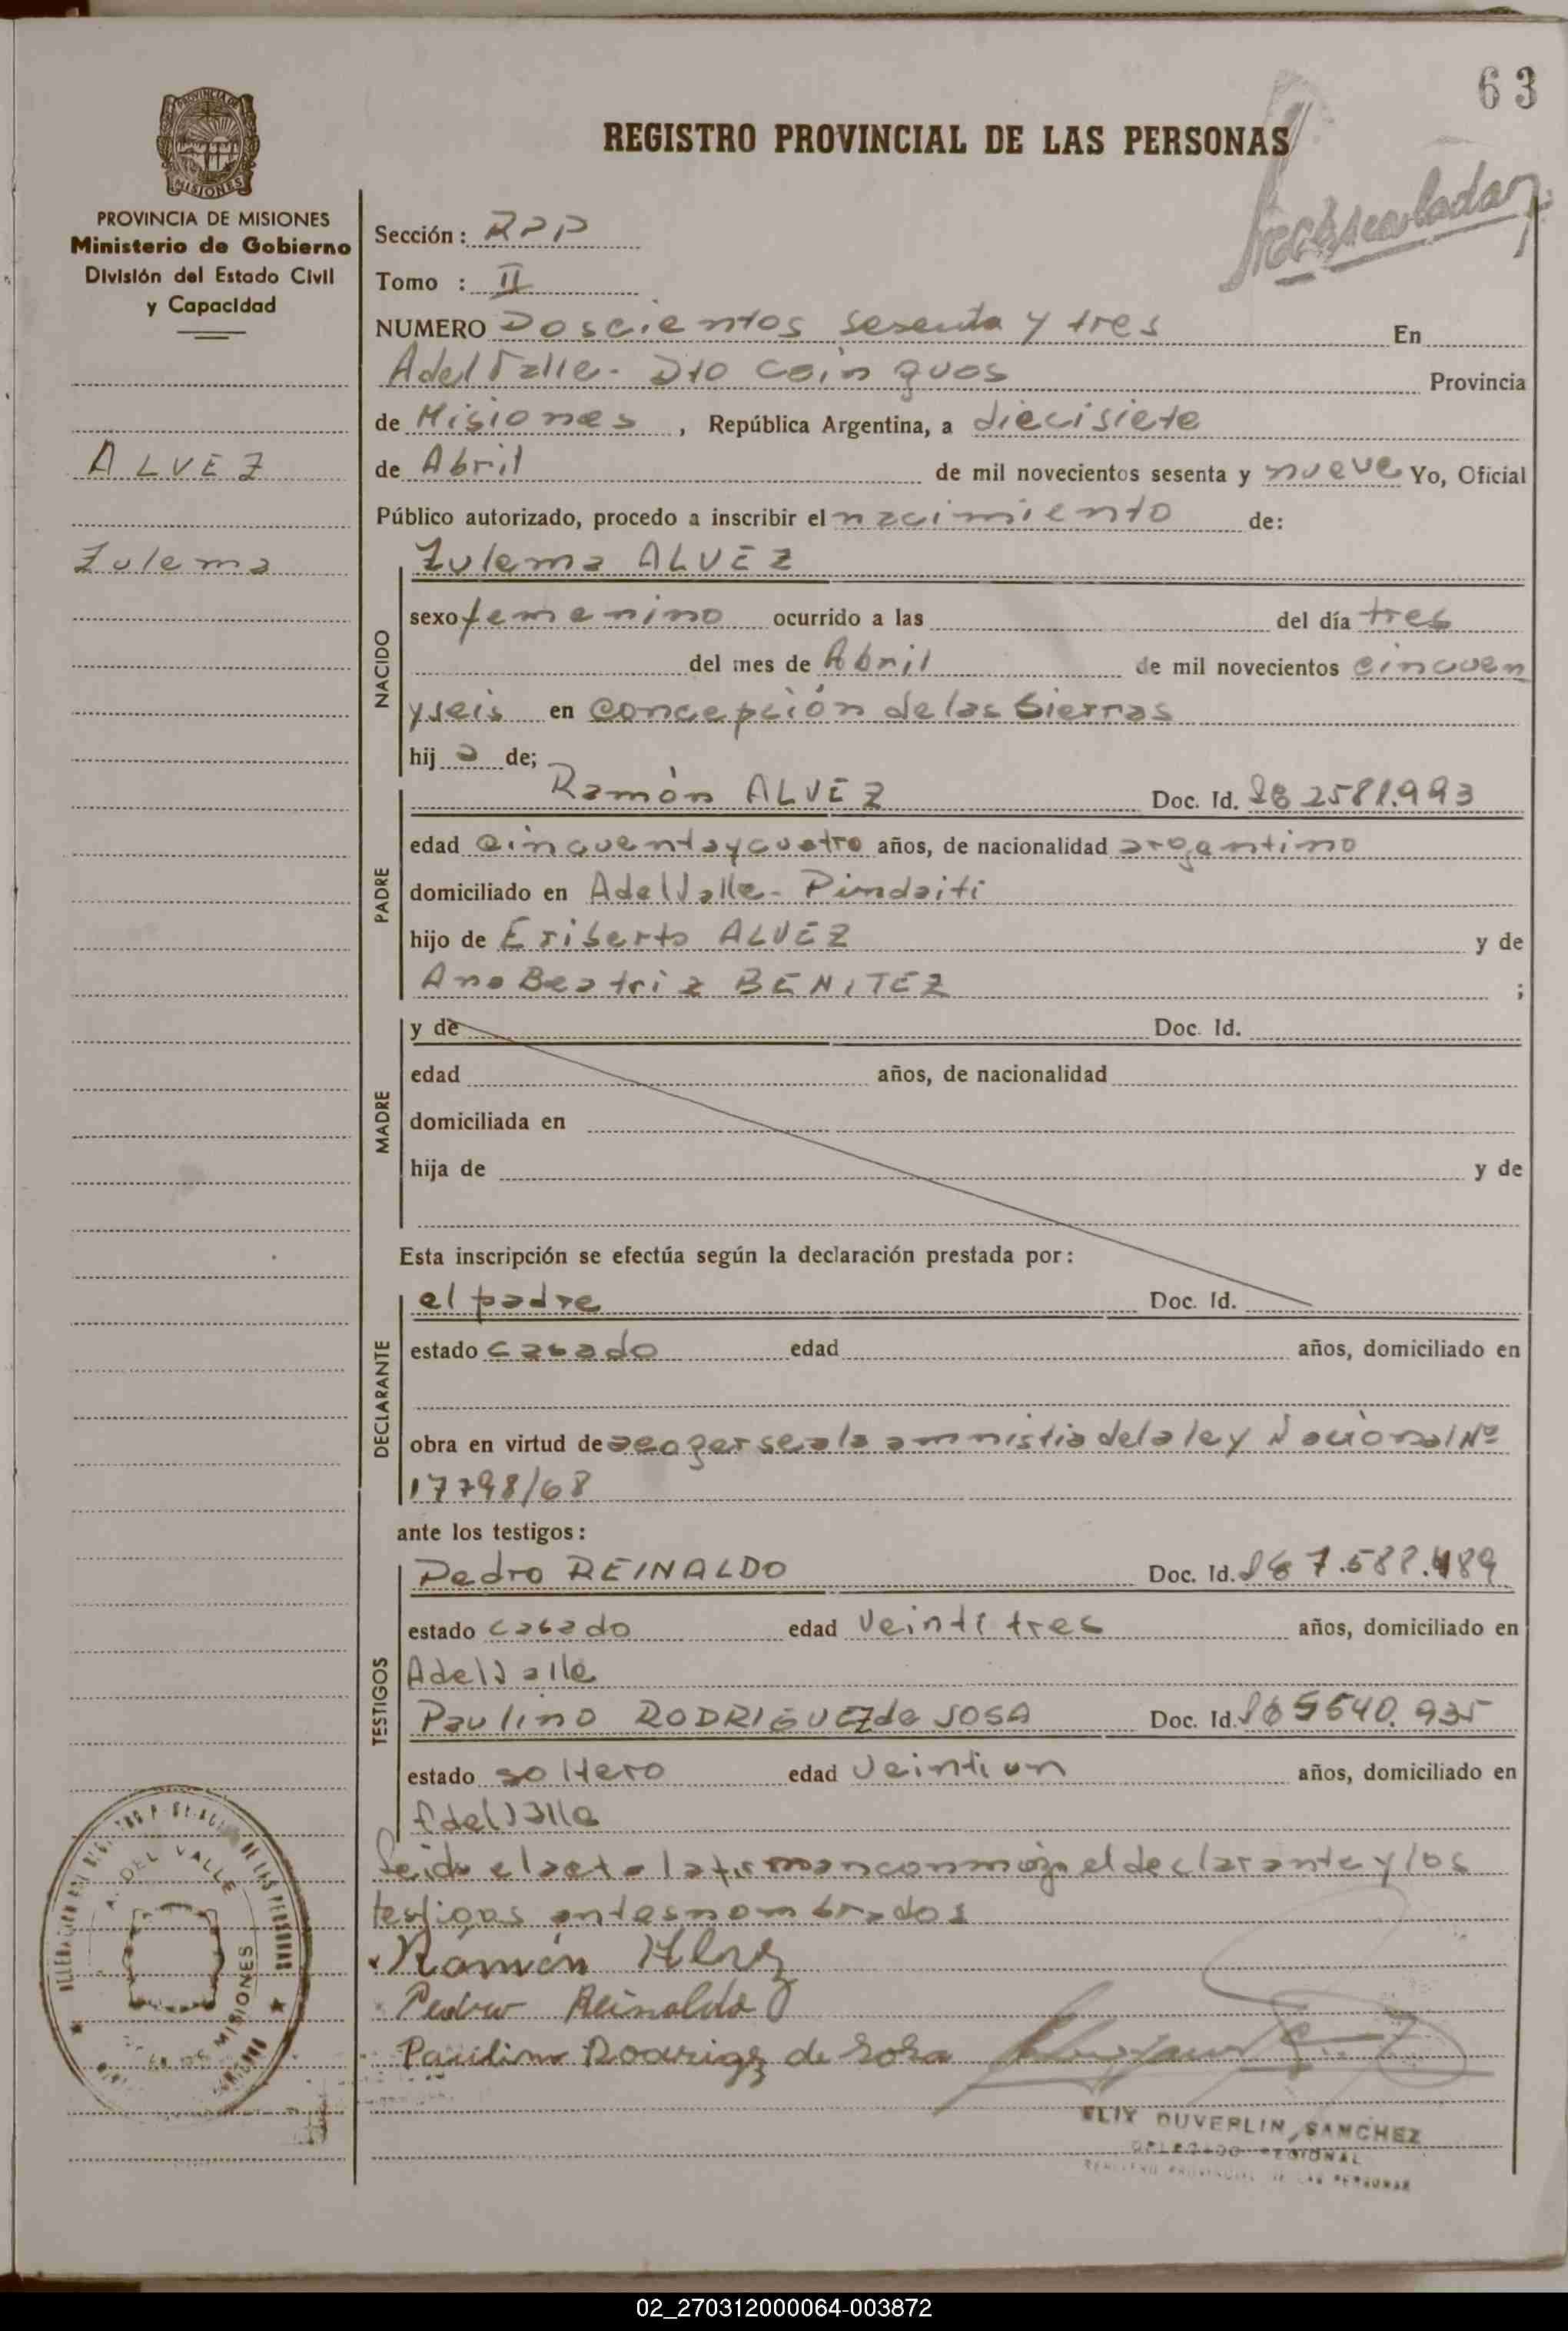 63
REGISTRO PROVINCIAL DE LAS PERSONAS
PROVINCIA DE MISIONES
MISIONES
PROVINCIA DE MISIONES
Ministerio de Gobierno
División del Estado Civil
y Capacidad
ALVEZ
Zulema
Sección: RPP
Tomo : II
NUMERO Doscientos sesenta y tres En
A del Valle - Dto Cain guos Provincia
de Misiones , República Argentina, a diecisiete
de Abril de mil novecientos sesenta y nueve Yo, Oficial
Público autorizado, procedo a inscribir el nacimiento de:
NACIDO
Zulema ALVEZ
sexo femenino ocurrido a las del día tres
del mes de Abril de mil novecientos cincuen
y seis en Concepción de las Sierras
hij a de;
PADRE
Ramón ALVEZ Doc. Id. 2581.993
edad cincuenta y cuatro años, de nacionalidad argentino
domiciliado en A del Valle - Pindaiti
hijo de Eriberto ALVEZ y de
Ana Beatriz BENITEZ ;
MADRE
y de Doc. Id.
edad años, de nacionalidad
domiciliada en
hija de y de
Esta inscripción se efectúa según la declaración prestada por:
DECLARANTE
el padre Doc. Id.
estado casado edad años, domiciliado en
obra en virtud de acogerse a la amnistia de la ley Nacional Nº
17798/68
ante los testigos:
TESTIGOS
Pedro REINALDO Doc. Id. 7.588.489
estado casado edad veintitres años, domiciliado en
A del Valle
Paulino RODRIGUEZ de SOSA Doc. Id. 5540.935
estado soltero edad veintiun años, domiciliado en
A del Valle
Leido el acta la firman conmigo el declarante y los
testigos antes nombrados
Ramón Alvez
Pedro Reinaldo
Paulino Rodrigz de Sosa
A. DEL VALLE
MISIONES
ELIX DUVERLIN SANCHEZ
DELEGADO REGIONAL
REGISTRO PROVINCIAL DE LAS PERSONAS
02_270312000064-003872